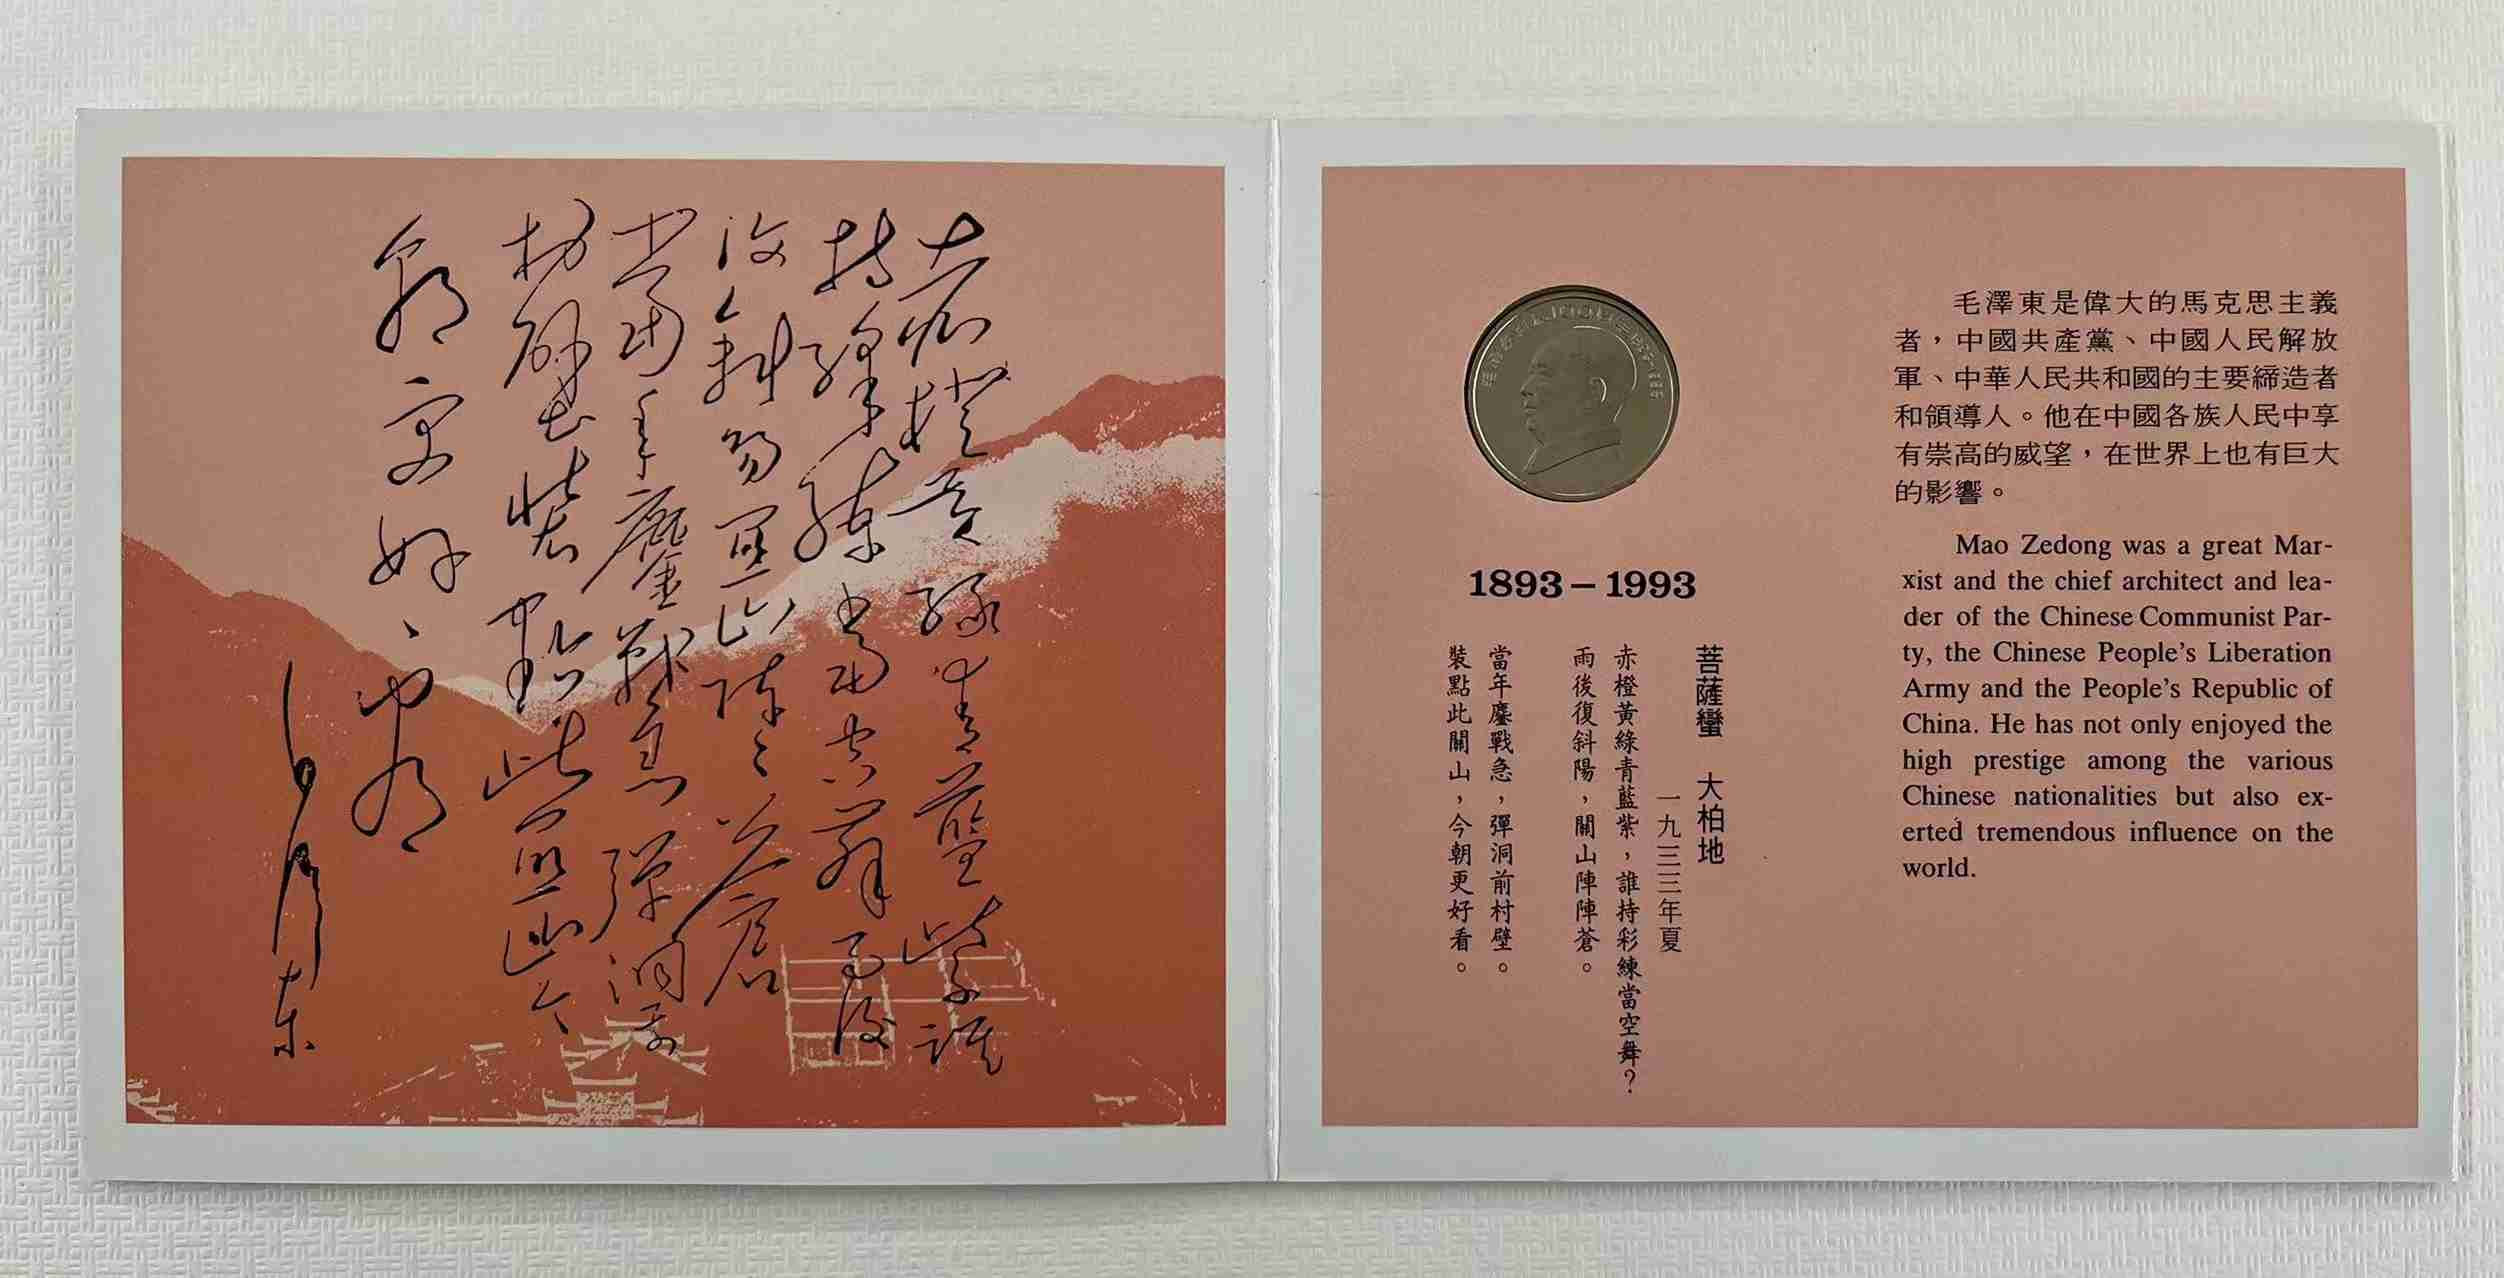 赤橙黃綠青藍紫誰
持彩練當空舞雨後
復斜陽關山陣〻蒼
當年鏖戰急彈洞前
村壁裝點此關山今
朝更好看
毛澤东
1893–1993
菩薩蠻　大柏地
一九三三年夏
赤橙黃綠青藍紫，誰持彩練當空舞？
雨後復斜陽，關山陣陣蒼。
當年鏖戰急，彈洞前村壁。
裝點此關山，今朝更好看。
毛澤東是偉大的馬克思主義
者，中國共產黨、中國人民解放
軍、中華人民共和國的主要締造者
和領導人。他在中國各族人民中享
有崇高的威望，在世界上也有巨大
的影響。
Mao Zedong was a great Mar-
xist and the chief architect and lea-
der of the Chinese Communist Par-
ty, the Chinese People's Liberation
Army and the People's Republic of
China. He has not only enjoyed the
high prestige among the various
Chinese nationalities but also ex-
erted tremendous influence on the
world.